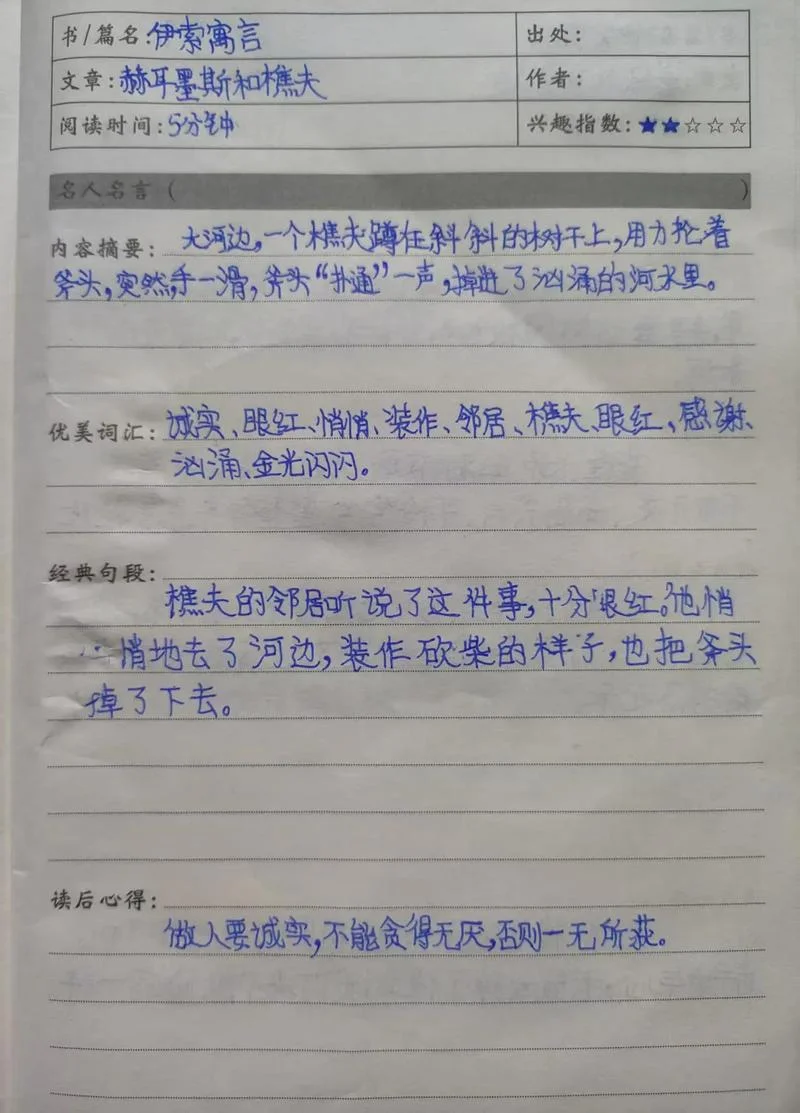 书/篇名:伊索寓言 出处:
文章:赫耳墨斯和樵夫 作者:
阅读时间:5分钟 兴趣指数:★★☆☆☆
名人名言 ( )
内容摘要: 大河边,一个樵夫蹲在斜斜的树干上,用力抡着
斧头,突然,手一滑,斧头“扑通”一声,掉进了汹涌的河水里。
优美词汇: 诚实、眼红、悄悄、装作、邻居、樵夫、眼红、感谢、
汹涌、金光闪闪。
经典句段:
樵夫的邻居听说了这件事,十分眼红。他悄
悄地去了河边,装作砍柴的样子,也把斧头
掉了下去。
读后心得:
做人要诚实,不能贪得无厌,否则一无所获。